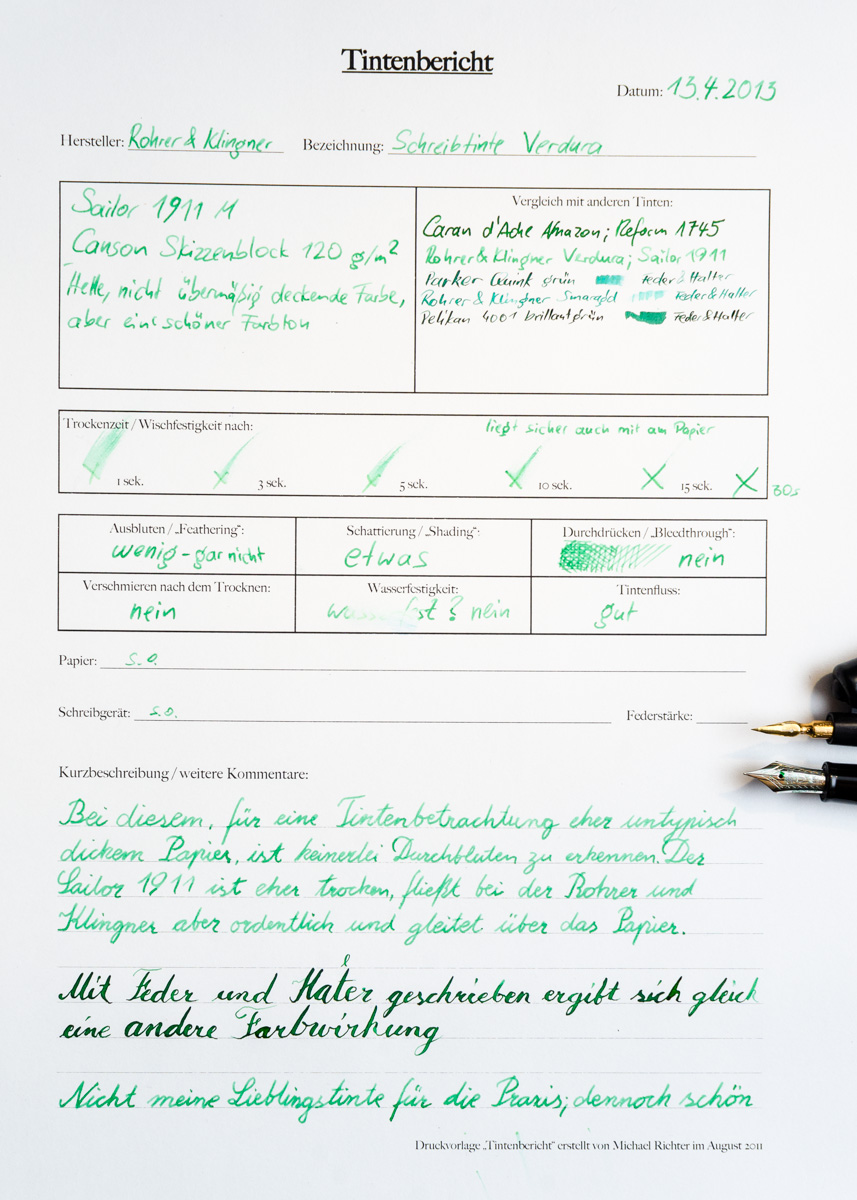 Tintenbericht
Datum: 13.4.2013
Hersteller: Rohrer & Klingner Bezeichnung: Schreibtinte Verdura
Sailor 1911 M
Canson Skizzenblock 120 g/m²
Helle, nicht übermäßig deckende Farbe,
aber ein schöner Farbton
Vergleich mit anderen Tinten:
Caran d'Ache Amazon; Reform 1745
Rohrer & Klingner Verdura; Sailor 1911
Parker Quink grün Feder & Halter
Rohrer & Klingner Smaragd Feder & Halter
Pelikan 4001 brillantgrün Feder & Halter
Trockenzeit / Wischfestigkeit nach: liegt sicher auch mit am Papier
1 sek. 3 sek. 5 sek. 10 sek. 15 sek. 30s
Ausbluten / „Feathering“: Schattierung / „Shading“: Durchdrücken / „Bleedthrough“:
wenig - gar nicht etwas nein
Verschmieren nach dem Trocknen: Wasserfestigkeit: Tintenfluss:
nein wasserfest? nein gut
Papier: s.o.
Schreibgerät: s.o. Federstärke:
Kurzbeschreibung / weitere Kommentare:
Bei diesem, für eine Tintenbetrachtung eher untypisch
dickem Papier, ist keinerlei Durchbluten zu erkennen. Der
Sailor 1911 ist eher trocken, fließt bei der Rohrer und
Klingner aber ordentlich und gleitet über das Papier.
Mit Feder und Halter geschrieben ergibt sich gleich
eine andere Farbwirkung
Nicht meine Lieblingstinte für die Praxis; dennoch schön
Druckvorlage „Tintenbericht“ erstellt von Michael Richter im August 2011